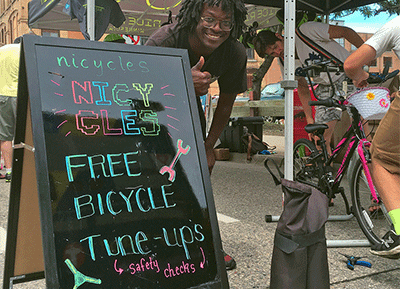 nicycles
NICY
CLES
FREE
BICYCLE
TUNE-UPS
safety checks